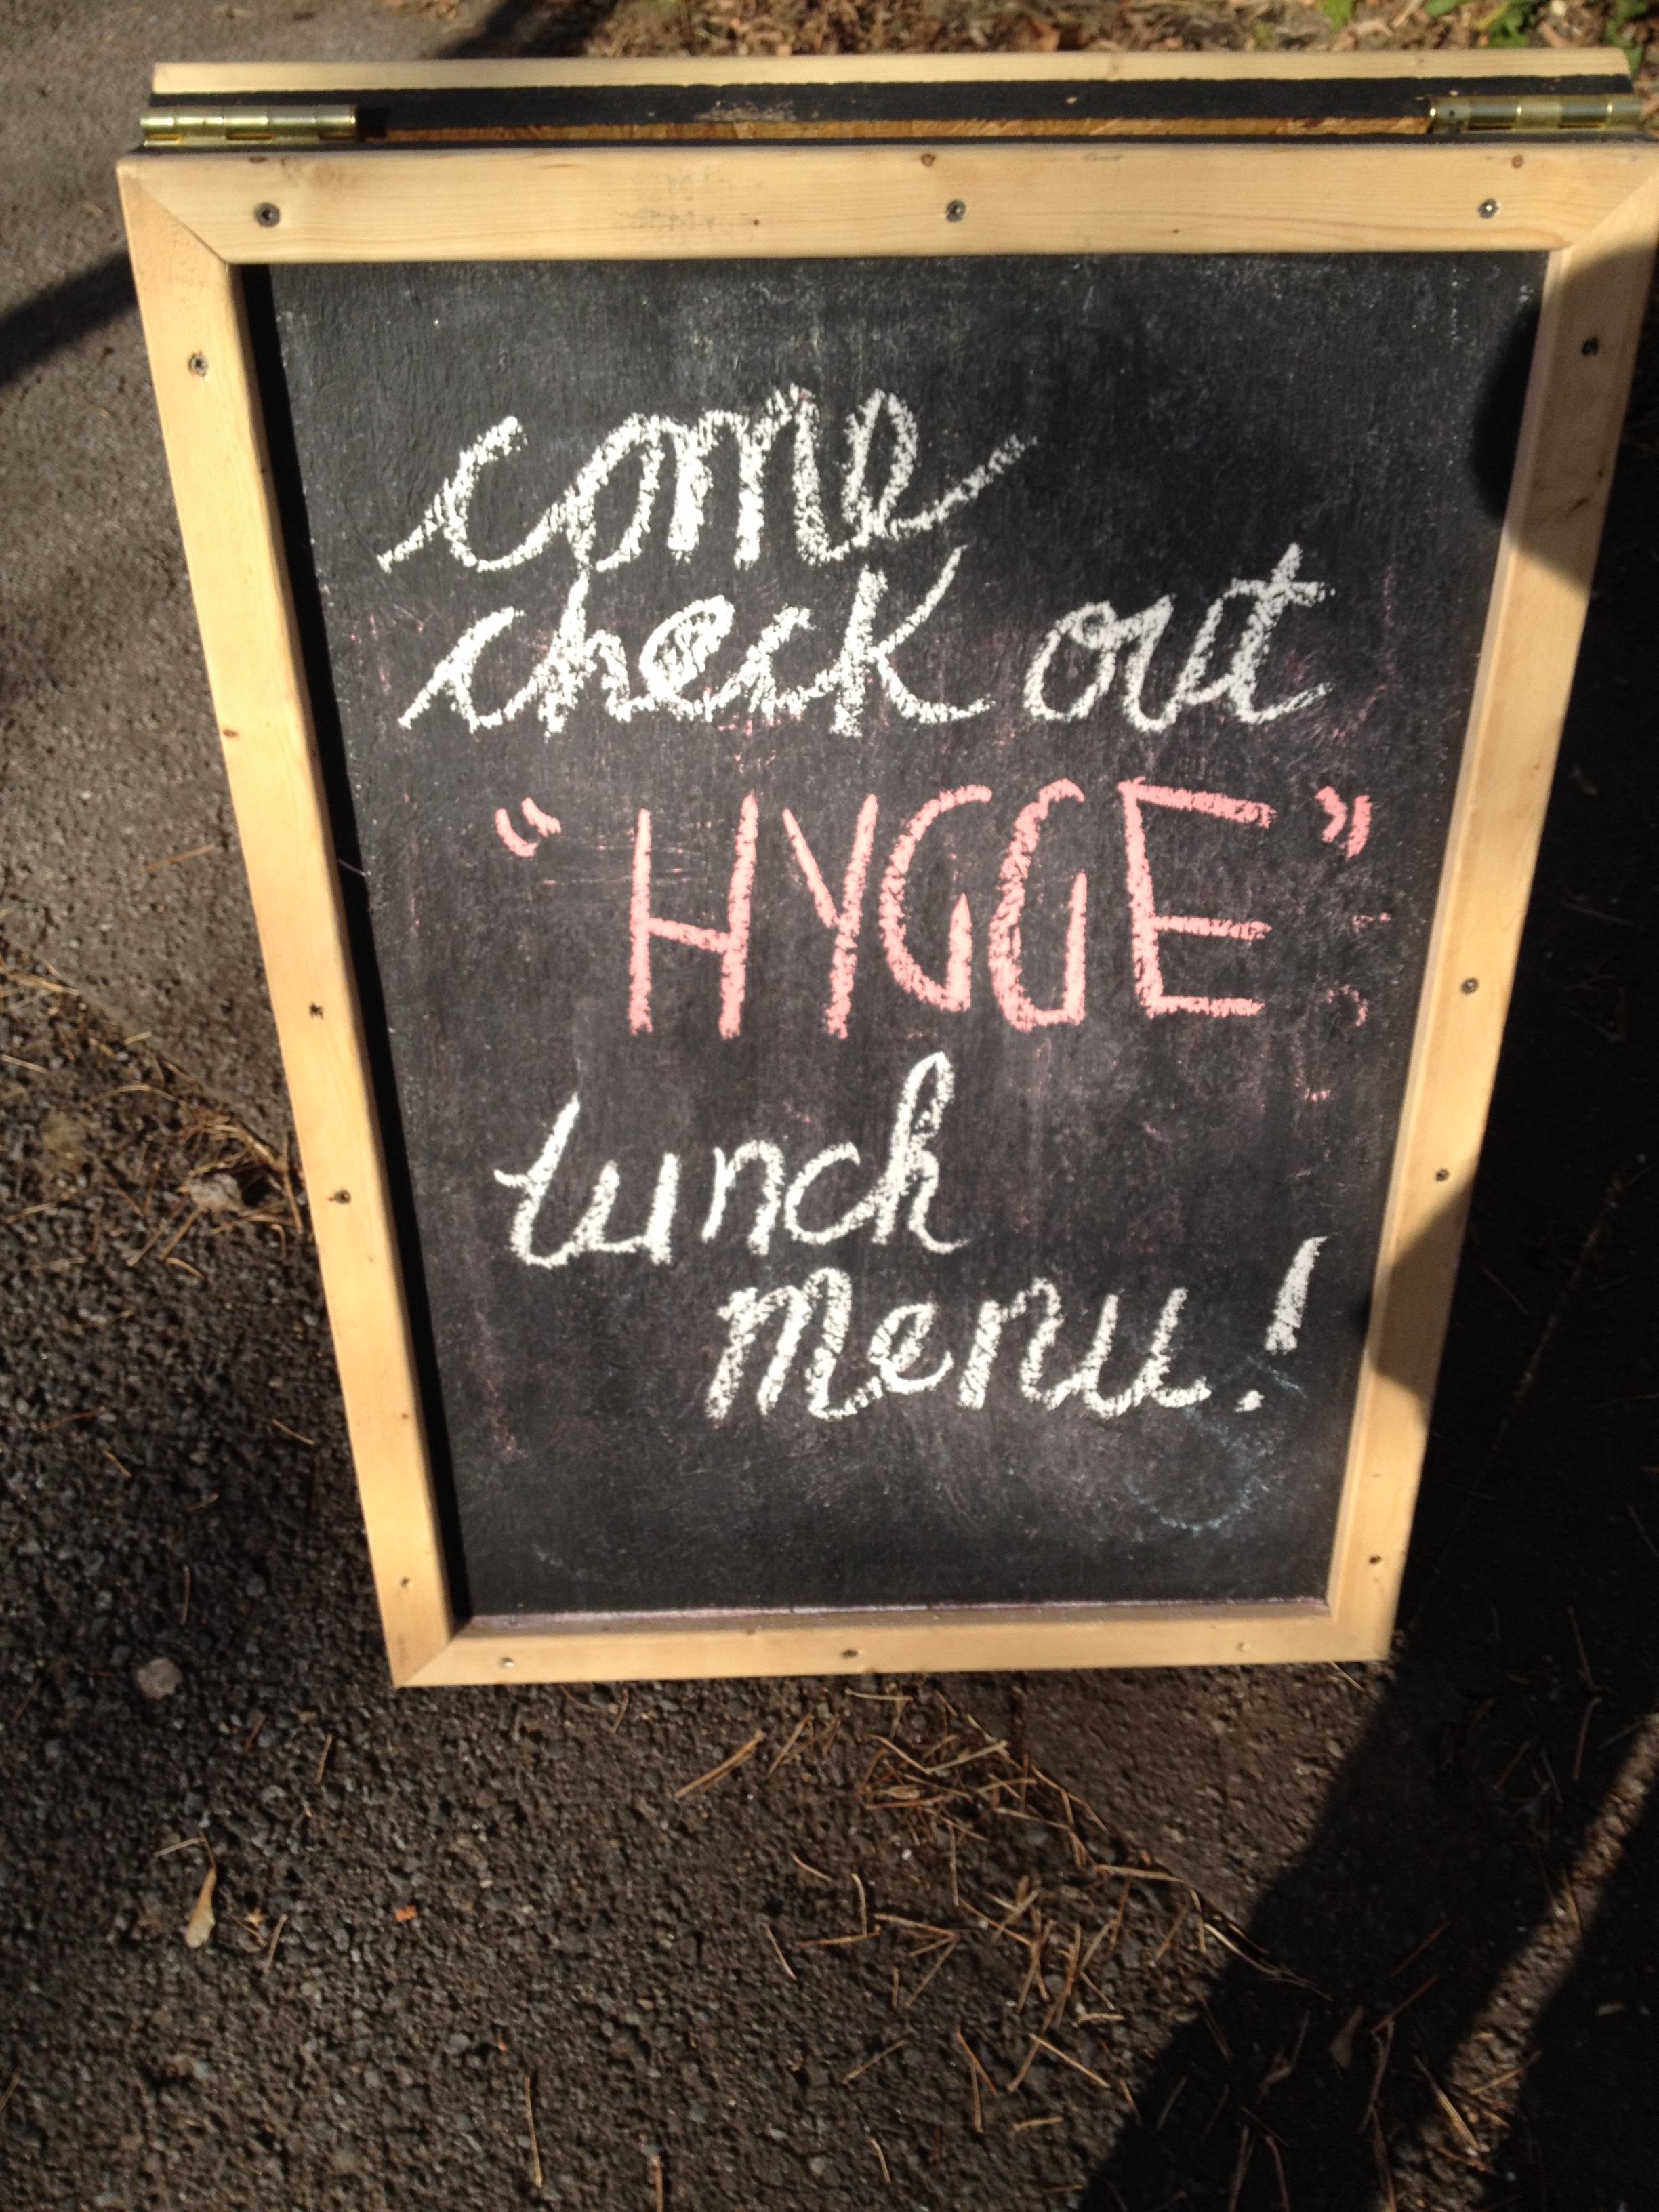 come
check out
“HYGGE”
lunch
menu!